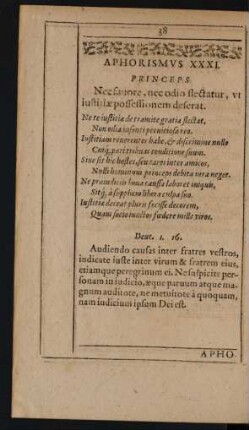 38
APHORISMVS XXXI.
PRINCEPS.
Nec fauore, nec odio flectatur, vt
iustitiæ possessionem deserat.
Ne te iustitiæ de tramite gratia flectat,
Non odia insonti perniciosa reo.
Iustitiam reuerenter habe, & discrimine nullo
Cuiq, pari tribuas conditione suum.
Siue sit hic hostes, seu tueatur inter amicos,
Nulli hominum princeps debita iura neget.
Ne præiudiciis bona caussa laboret iniquis,
Sitq, à supplicio libera culpa suo.
Iustitiæ deceat pluris fecisse decorem,
Quam socio iunctos fœdere mille viros.
Deut. 1. 16.
Audiendo causas inter fratres vestros,
iudicate iuste inter virum & fratrem eius,
etiamque peregrinum ei. Ne suspicite per-
sonam in iudicio, æque paruum atque ma-
gnum auditote, ne metuitote à quoquam,
nam iudicium ipsum Dei est.
APHO-